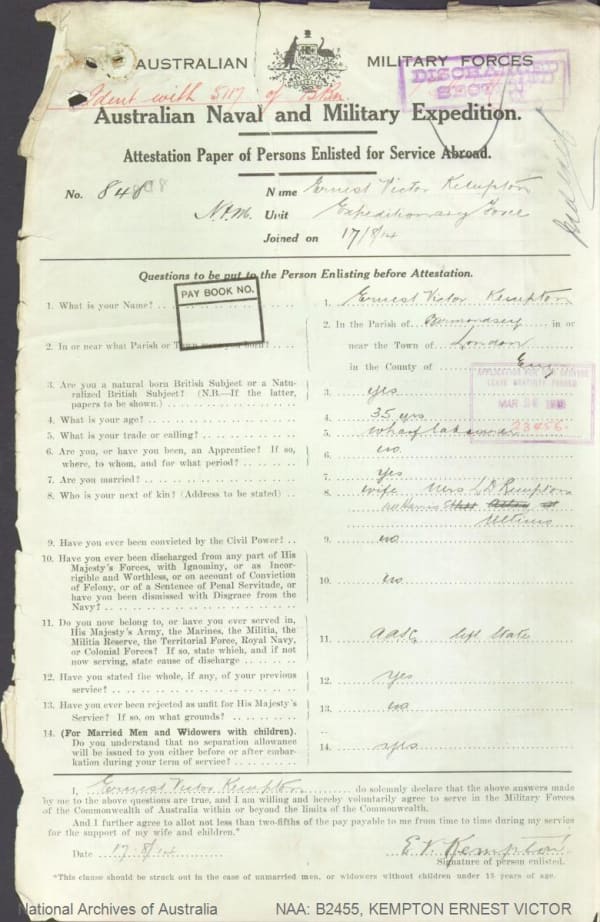 AUSTRALIAN MILITARY FORCES
DISCHARGED
SECT
Ident with 5117 of
Australian Naval and Military Expedition.
Attestation Paper of Persons Enlisted for Service Abroad.
No. 848 Name Ernest Victor Kempton
Unit Expeditionary Force
Joined on 17/8/14
Questions to be put to the Person Enlisting before Attestation.
PAY BOOK NO.
1. What is your Name? 1. Ernest Victor Kempton
2. In or near what Parish or Town were you born? 2. In the Parish of Bermondsey in or
near the Town of London
in the County of Eng
3. Are you a natural born British Subject or a Natu-
ralized British Subject? (N.B.—If the latter,
papers to be shown.) 3. yes
4. What is your age? 4. 35 yrs
5. What is your trade or calling? 5. wharf labourer
6. Are you, or have you been, an Apprentice? If so,
where, to whom, and for what period? 6. no
7. Are you married? 7. yes
8. Who is your next of kin? (Address to be stated) 8. wife Mrs Kempton
Ultimo
MAR
23456
9. Have you ever been convicted by the Civil Power? 9. no
10. Have you ever been discharged from any part of His
Majesty's Forces, with Ignominy, or as Incor-
rigible and Worthless, or on account of Conviction
of Felony, or of a Sentence of Penal Servitude, or
have you been dismissed with Disgrace from the
Navy? 10. no
11. Do you now belong to, or have you ever served in,
His Majesty's Army, the Marines, the Militia, the
Militia Reserve, the Territorial Force, Royal Navy,
or Colonial Forces? If so, state which, and if not
now serving, state cause of discharge 11. AASC left State
12. Have you stated the whole, if any, of your previous
service? 12. Yes
13. Have you ever been rejected as unfit for His Majesty's
Service? If so, on what grounds? 13. no
14. (For Married Men and Widowers with children).
Do you understand that no separation allowance
will be issued to you either before or after embar-
kation during your term of service? 14. yes
I, Ernest Victor Kempton do solemnly declare that the above answers made
by me to the above questions are true, and I am willing and hereby voluntarily agree to serve in the Military Forces
of the Commonwealth of Australia within or beyond the limits of the Commonwealth.
And I further agree to allot not less than two-fifths of the pay payable to me from time to time during my service
for the support of my wife and children.*
Date 17.8/14 E. V. Kempton
Signature of person enlisted.
*This clause should be struck out in the case of unmarried men, or widowers without children under 18 years of age.
National Archives of Australia NAA: B2455, KEMPTON ERNEST VICTOR